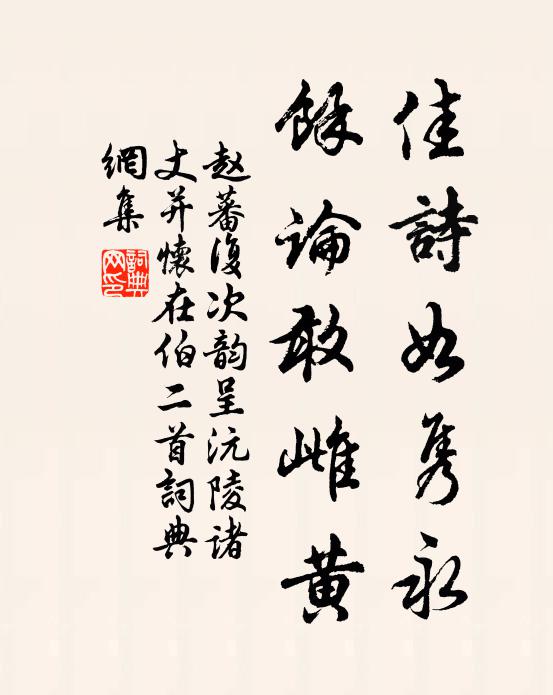 佳詩如雋永
餘論敢雌黃
赵蕃復次韵呈沅陵諸
丈并懷在伯二首詞典
網集
詞典網印